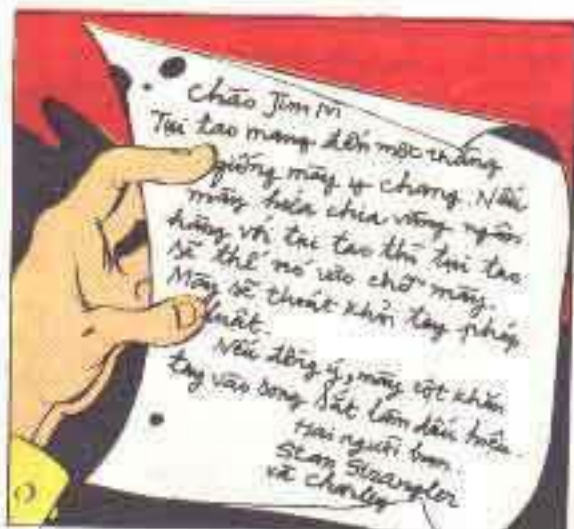 Chào Jim M
Tụi tao mang đến một thằng
giống mày y chang. Nếu
mày hứa chia vàng ngân
hàng với tụi tao thì tụi tao
sẽ thế nó vào chỗ mày.
Mày sẽ thoát khỏi tay pháp
luật.
Nếu đồng ý, mày cột khăn
tay vào song sắt làm dấu hiệu.
Hai người bạn.
Stan Strangler
và Charley